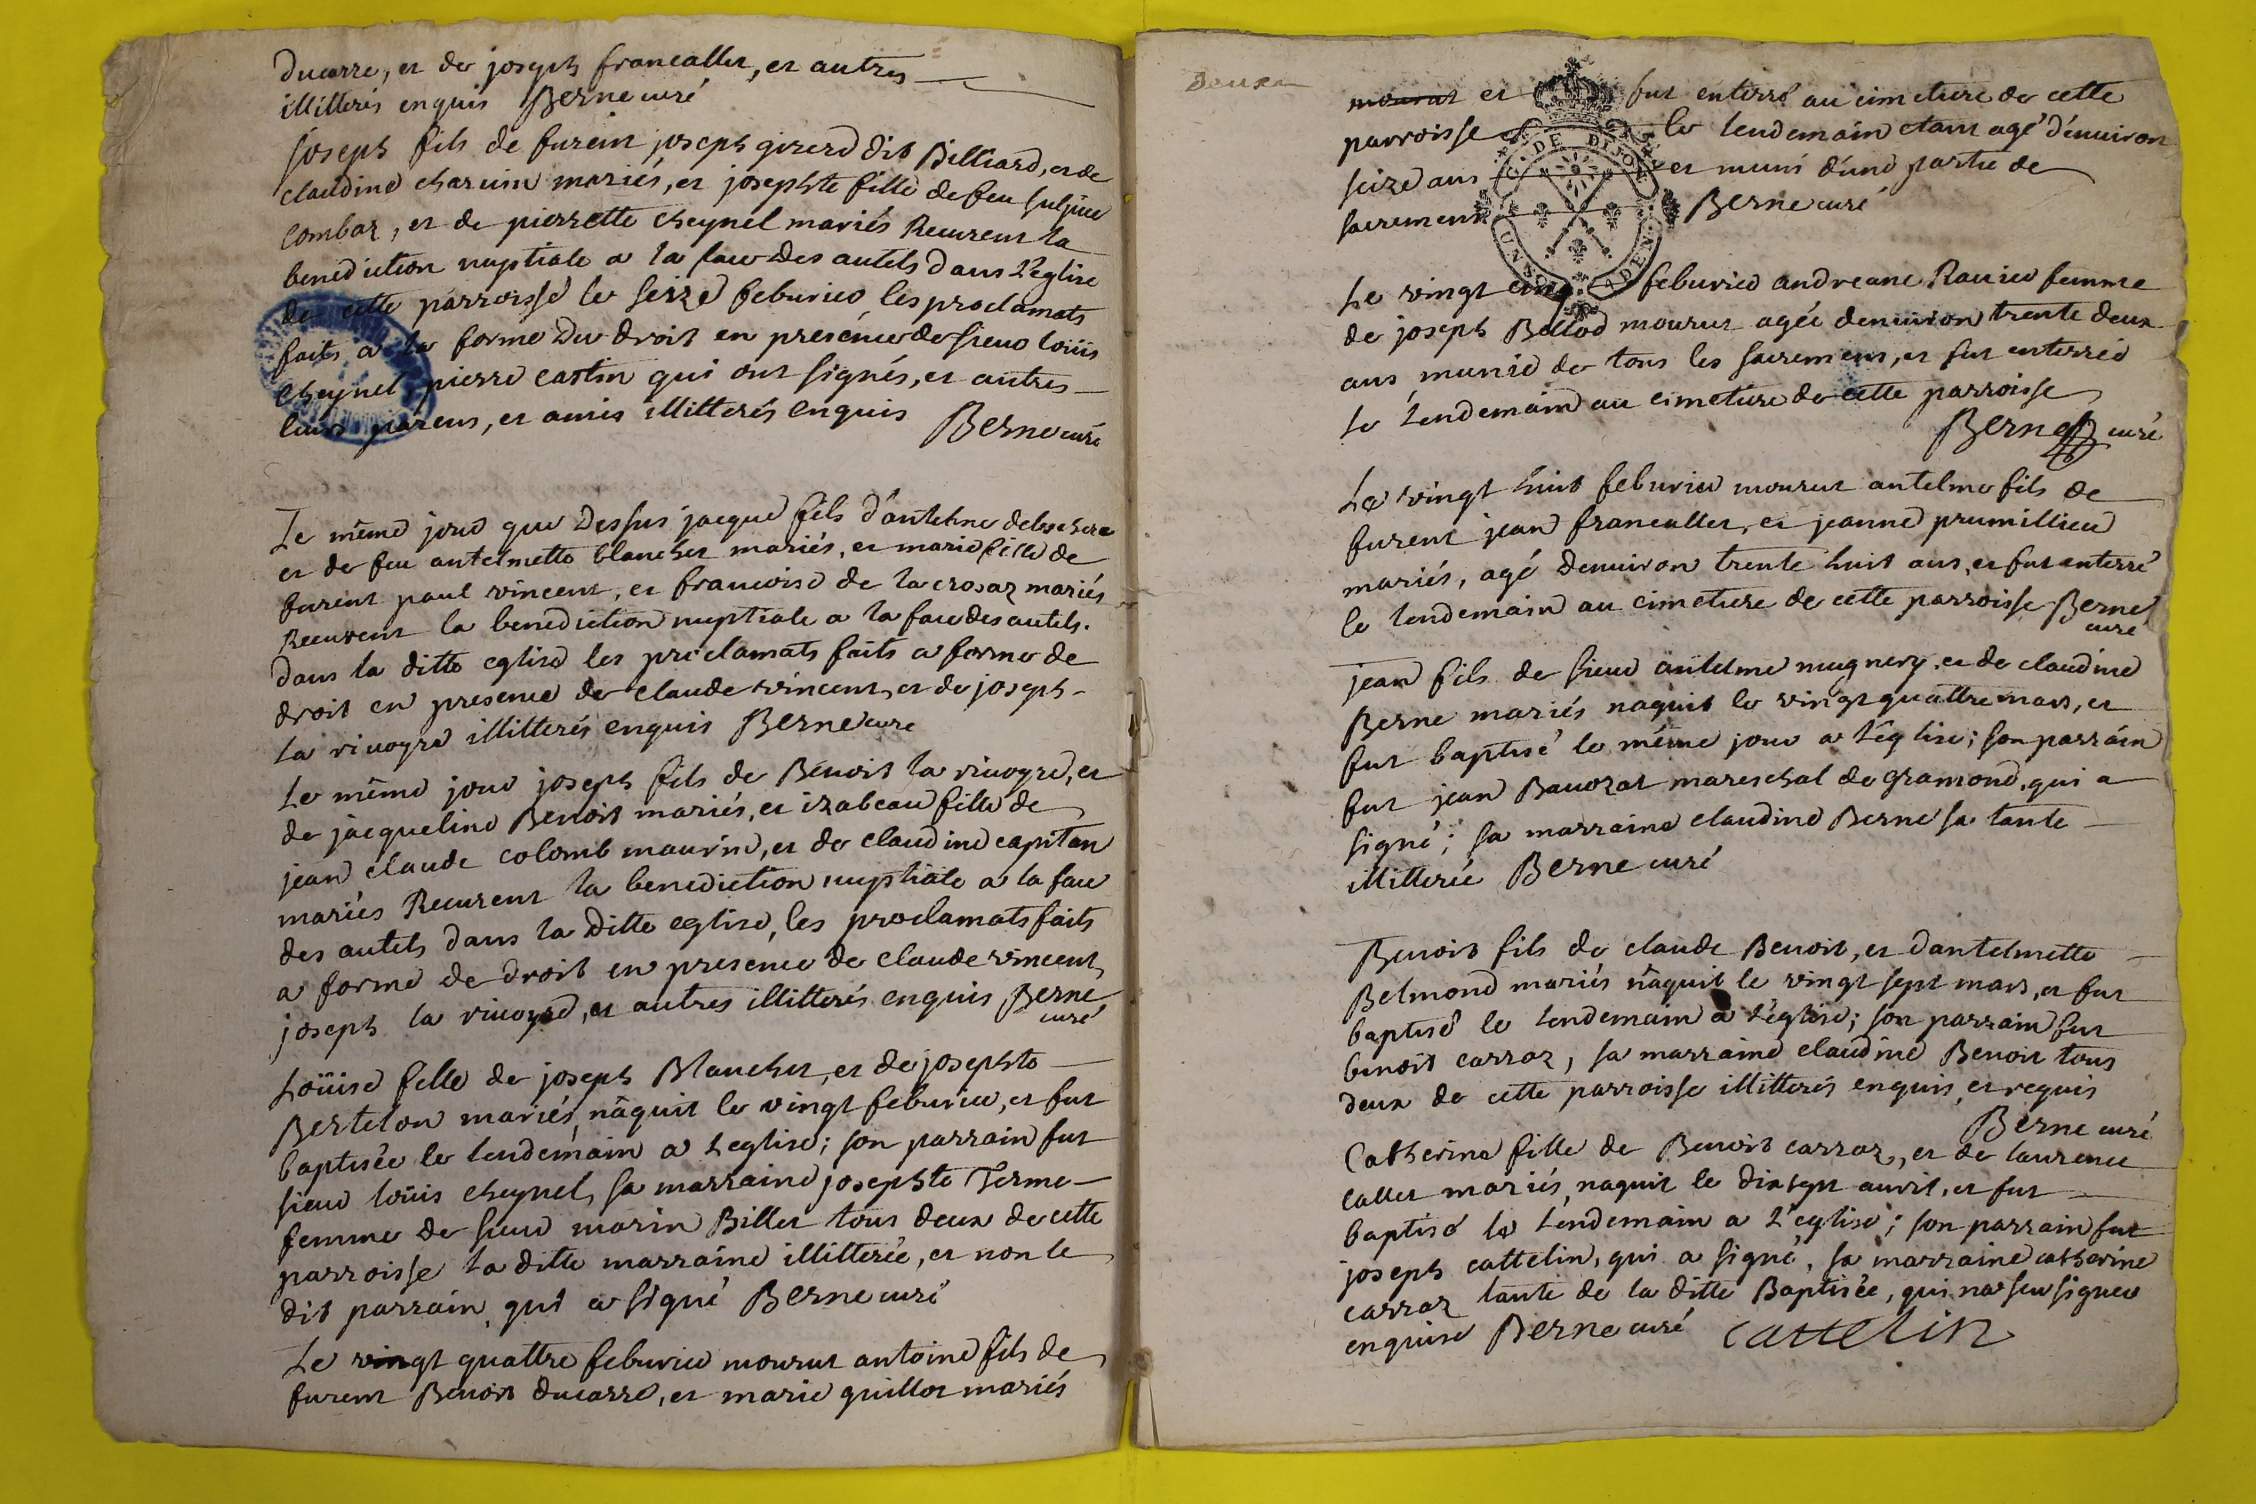 Ducarre, et de joseph francallet, et autres
illitterés enquis Berne curé
joseph fils de furent joseph girerd dit Billiard, et de
claudine charcim mariés, et josephte fille de feu sulpice
Combaz, et de pierrette cheynel mariés Recurent la
benediction nuptiale a la face des autels dans L'eglise
de cette parroisse le seize feburier les proclamats
faits a la forme du droit en presence de sieur loüis
Cheynel pierre cattin qui ont signés, et autres
leurs parens, et amis illitterés enquis Berne curé
Le même jour que dessus jacque fils d'antelme
et de feu antelmette blanchet mariés, et marie fille de
furent paul vincent, et francoise de la crosaz mariés
Recurent la benediction nuptiale a la face des autels.
dans la ditte eglise les proclamats faits a forme de
droit en presence de claude vincent, et de joseph
la riuoyre illitterés enquis Berne curé
Le même jour joseph fils de Benoit la riuoyre, et
de jacqueline Benoit mariés, et izabeau fille de
jean claude colomb maurin, et de claudine capitan
mariés Recurent la benediction nuptiale a la face
des autels dans la ditte eglise, les proclamats faits
a forme de droit en presence de claude vincent,
joseph la riuoyre, et autres illitterés enquis Berne
curé
Loüise fille de joseph Blanchet, et de josephte
Bertelon mariés, nâquit le vingt feburier, et fut
baptisée le lendemain a L'eglise; son parrain fut
sieur loüis cheynel, sa marraine josephte Terme
femme de sieur marin Billet tous deux de cette
parroisse la ditte marraine illitterée, et non le
dit parrain, qui a signé Berne curé
Le vingt quattre feburier mourut antoine fils de
furent Benoit ducarre, et marie guillot mariés
Deuxe
mourut et fut enterré au cimeture de cette
parroisse le lendemain etant agé d'enuiron
seize ans et muni d'une partie de
sacremens Berne curé
G. DE DIJON
UN SOL
4 DEN.
Le vingt cinq feburier andreane Rauier femme
de joseph Bellod mourut agée denuiron trente deux
ans munie de tous les sacremens, et fut enterrée
le Lendemain au cimeture de cette parroisse
Berne curé
Le vingt huit feburier mourut antelme fils de
furent jean francallet, et jeanne prumillieu
mariés, agé denuiron trente huit ans, et fut enterré
le lendemain au cimeture de cette parroisse Berne
curé
jean fils de sieur antelme mugnery, et de claudine
Berne mariés naquit le vingt quattre mars, et
fut baptisé le même jour a L'église; son parrain
fut jean Bauozat mareschal de gramond, qui a
signé; sa marraine claudine Berne sa tante
illitterée Berne curé
Benoit fils de claude Benoit, et dantelmette
Belmond mariés nâquit le vingt sept mars, et fut
baptisé le lendemain a L'église; son parrain fut
benoit carraz, sa marraine claudine Benoit tous
deux de cette parroisse illitterés enquis, et requis
Berne curé
Catherine fille de Benoit carraz, et de laurence
callet mariés, naquit le dix sept auril, et fut
baptisé le Lendemain a L'eglise; son parrain fut
joseph cattelin, qui a signé, sa marraine catherine
carraz tante de la ditte Baptisée, qui na seu signer
enquise Berne curé Cattelin